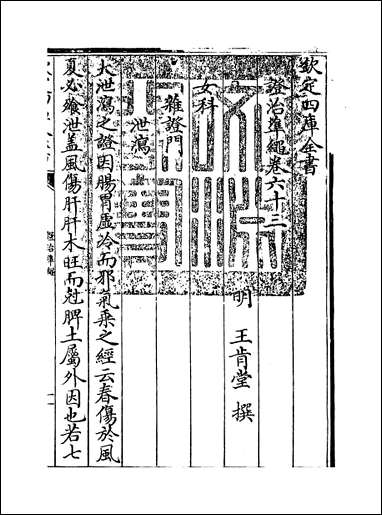 欽定四庫全書
證治準繩卷六十三
明 王肯堂 撰
女科
雜證門
泄瀉
大泄瀉之證因腸胃虛冷而邪氣乘之經云春傷於風
夏必飧泄蓋風傷肝肝木旺而尅脾土屬外因也若七